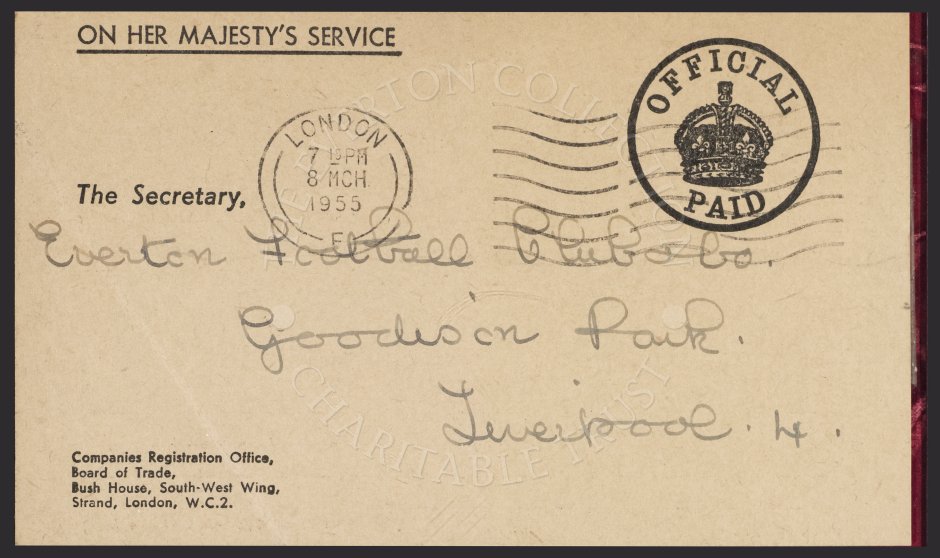 ON HER MAJESTY'S SERVICE
OFFICIAL
PAID
LONDON
7 15 PM
8 MCH
1955
E
The Secretary,
Everton Football Club Co.
Goodison Park.
Liverpool. 4.
Companies Registration Office,
Board of Trade,
Bush House, South-West Wing,
Strand, London, W.C.2.
THE EVERTON COLLECTION
CHARITABLE TRUST